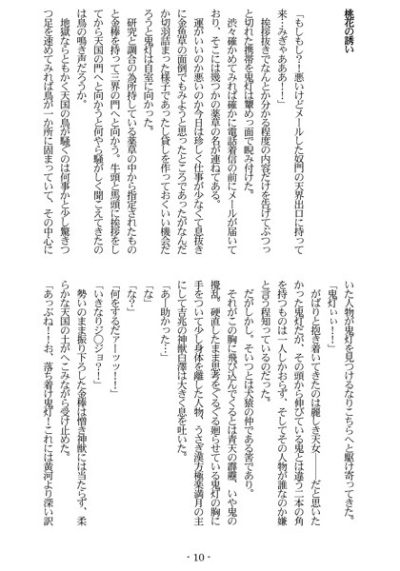 桃花の誘い
「もしもし？！悪いけどメールした奴門の天界出口に持って
来…！みぎゃあああ！！」
挨拶抜きでなんとか分かる程度の内容だけを告げてぶつっ
と切れた携帯を鬼灯は顰めっ面で睨み付けた。
渋々確かめてみれば確かに電話着信の前にメールが届いて
おり、そこには幾つかの薬草の名が連ねてある。
運がいいのか悪いのか今日は珍しく仕事が少なくて息抜き
に金魚草の面倒でもみようと思ったところであったがなんだ
か切羽詰まった様子であったし貸しを作っておくいい機会だ
ろうと鬼灯は自室に向かった。
研究と調合の為所持している薬草の中から指定されたもの
と金棒を持って三界の門へと向かう。牛頭と馬頭に挨拶をし
てから天国の門へと向かうと何やら騒がしく聞こえてきたの
は鳥の鳴き声だろうか。
地獄ならともかく天国の鳥が騒ぐのは何事かと少し驚きつ
つ足を速めてみれば鳥が一か所に固まっていて、その中心に
いた人物が鬼灯を見つけるなりこちらへと駆け寄ってきた。
「鬼灯ぃぃ！！」
がばりと抱き着いてきたのは麗しき天女――だと思いた
かった鬼灯だが、その頭から伸びている鬼とは違う二本の角
を持つものは一人しかおらず、そしてその人物が誰なのか嫌
と言う程知っているのだった。
だがしかし、そいつとは犬猿の仲である筈であり。
それがこの胸に飛び込んでくるとは青天の霹靂、いや鬼の
攪乱。硬直したまま思考をぐるぐる廻らせている鬼灯の胸に
手をついて少し身体を離した人物、うさぎ漢方極楽満月の主
にして吉兆の神獣白澤は大きく息を吐いた。
「あー助かった…」
「な」
「な？」
「何をするだァーッッ！！」
「いきなりジ〇ジョ？！」
勢いのまま振り下ろした金棒は憎き神獣には当たらず、柔
らかな天国の土がへこみながら受け止めた。
「あっぶね！！お、落ち着け鬼灯！これには黄河より深い訳
- 10 -